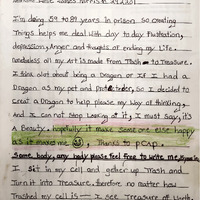 I'm doing 59 to 89 years in prison so creating
Things helps me deal with day to day frustration,
depression, Anger and thoughts of ending my life.
all my Art is made from Trash to Treasure.
I think alot about being a Dragon or if I had a
Dragon as my pet and Protector, so I decided to
Creat a Dragon to help please my Way of thinking,
And I can not stop Looking at it, I must say, it's
A Beauty. hopefully it make someone else happy
as it makes me Thanks to PCAP.
Some body, any body please feel free to Write me,
I sit in my cell and gather up Trash and
Turn it into Treasure. therefore no matter how
Trashed my cell is I see Treasure of Worth.